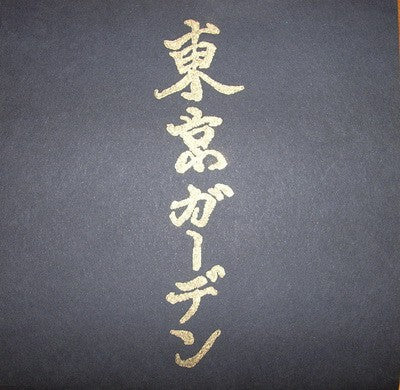 東京ガーデン